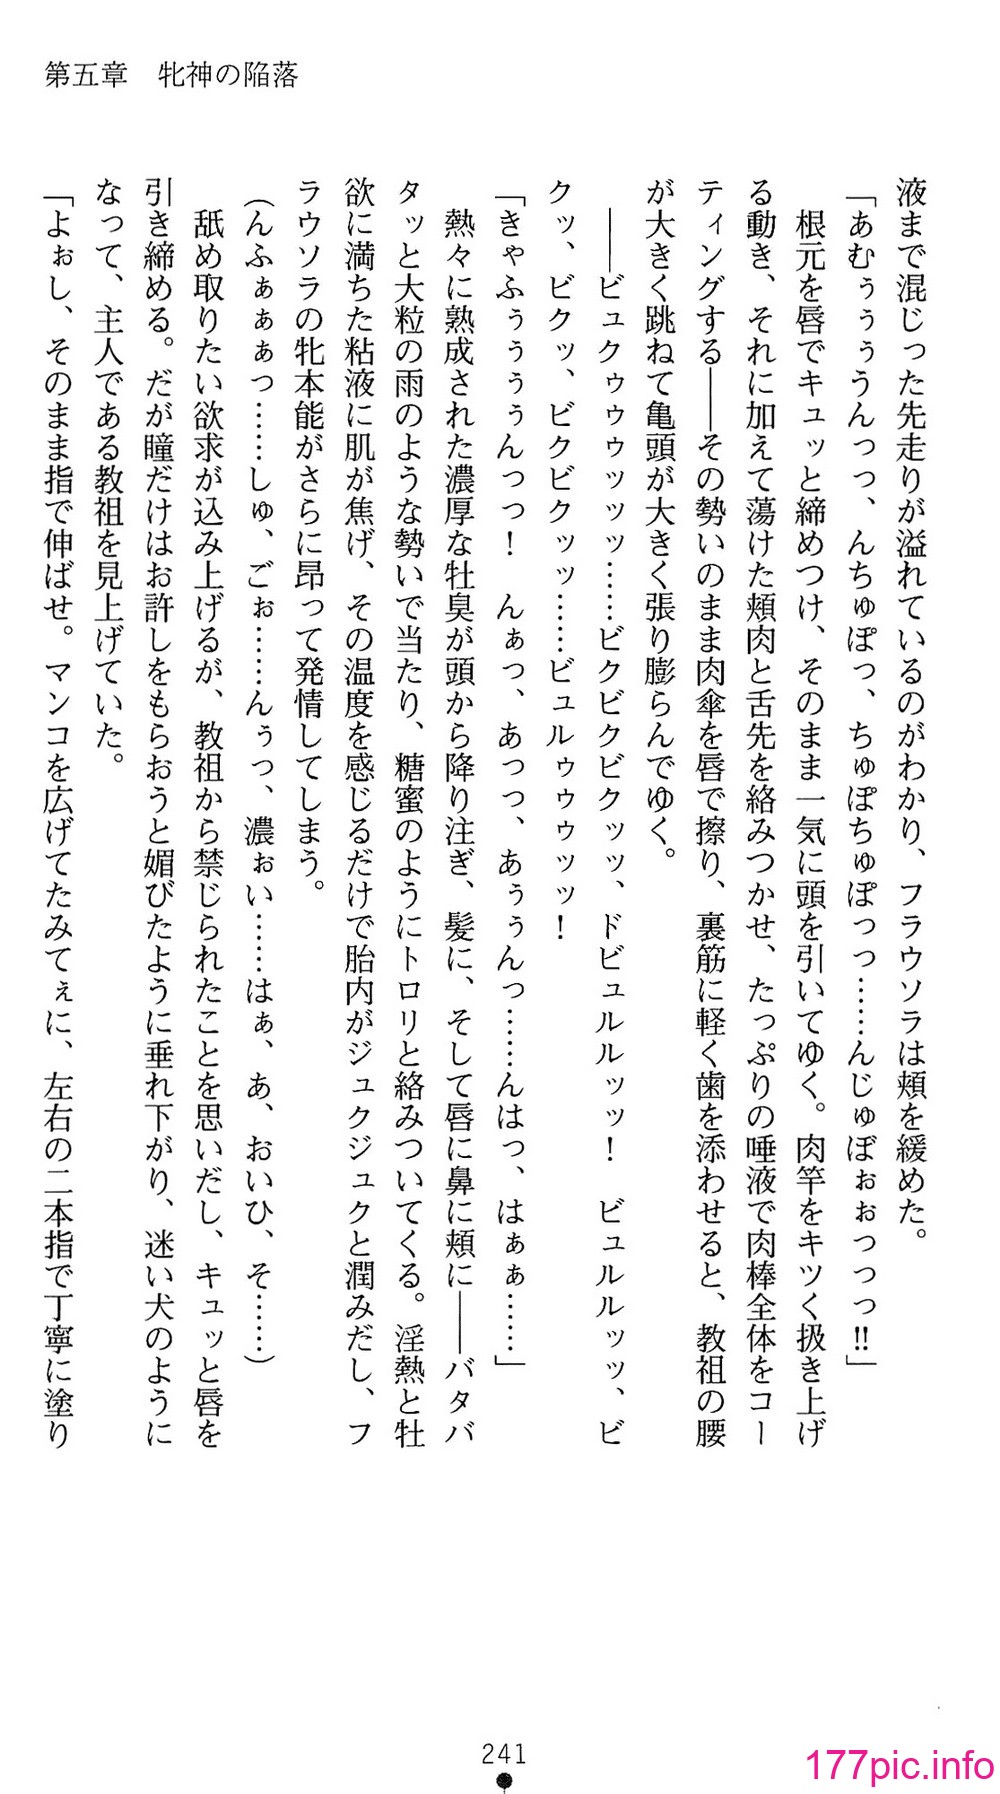 第五章　牝神の陥落
液まで混じった先走りが溢れているのがわかり、フラウソラは頬を緩めた。
「あむぅぅぅうんっっ、んちゅぽっ、ちゅぽちゅぽっっ……んじゅぼぉぉっっっ‼」
根元を唇でキュッと締めつけ、そのまま一気に頭を引いてゆく。肉竿をキツく扱き上げ
る動き、それに加えて蕩けた頬肉と舌先を絡みつかせ、たっぷりの唾液で肉棒全体をコー
ティングする――その勢いのまま肉傘を唇で擦り、裏筋に軽く歯を添わせると、教祖の腰
が大きく跳ねて亀頭が大きく張り膨らんでゆく。
――ビュクゥゥゥッッッ……ビクビクビクッッ、ドビュルルッッ！　ビュルルッッ、ビ
クッ、ビクッ、ビクビクッッ……ビュルゥゥゥッッ！
「きゃふぅぅぅぅんっっ！　んぁっ、あっっ、あぅぅんっ……んはっ、はぁぁ……」
熱々に熟成された濃厚な牡臭が頭から降り注ぎ、髪に、そして唇に鼻に頬に――バタバ
タッと大粒の雨のような勢いで当たり、糖蜜のようにトロリと絡みついてくる。淫熱と牡
欲に満ちた粘液に肌が焦げ、その温度を感じるだけで胎内がジュクジュクと潤みだし、フ
ラウソラの牝本能がさらに昂って発情してしまう。
（んふぁぁぁっ……しゅ、ごぉ……んぅっ、濃ぉい……はぁ、あ、おいひ、そ……）
舐め取りたい欲求が込み上げるが、教祖から禁じられたことを思いだし、キュッと唇を
引き締める。だが瞳だけはお許しをもらおうと媚びたように垂れ下がり、迷い犬のように
なって、主人である教祖を見上げていた。
「よぉし、そのまま指で伸ばせ。マンコを広げてたみてぇに、左右の二本指で丁寧に塗り
241
177pic.info